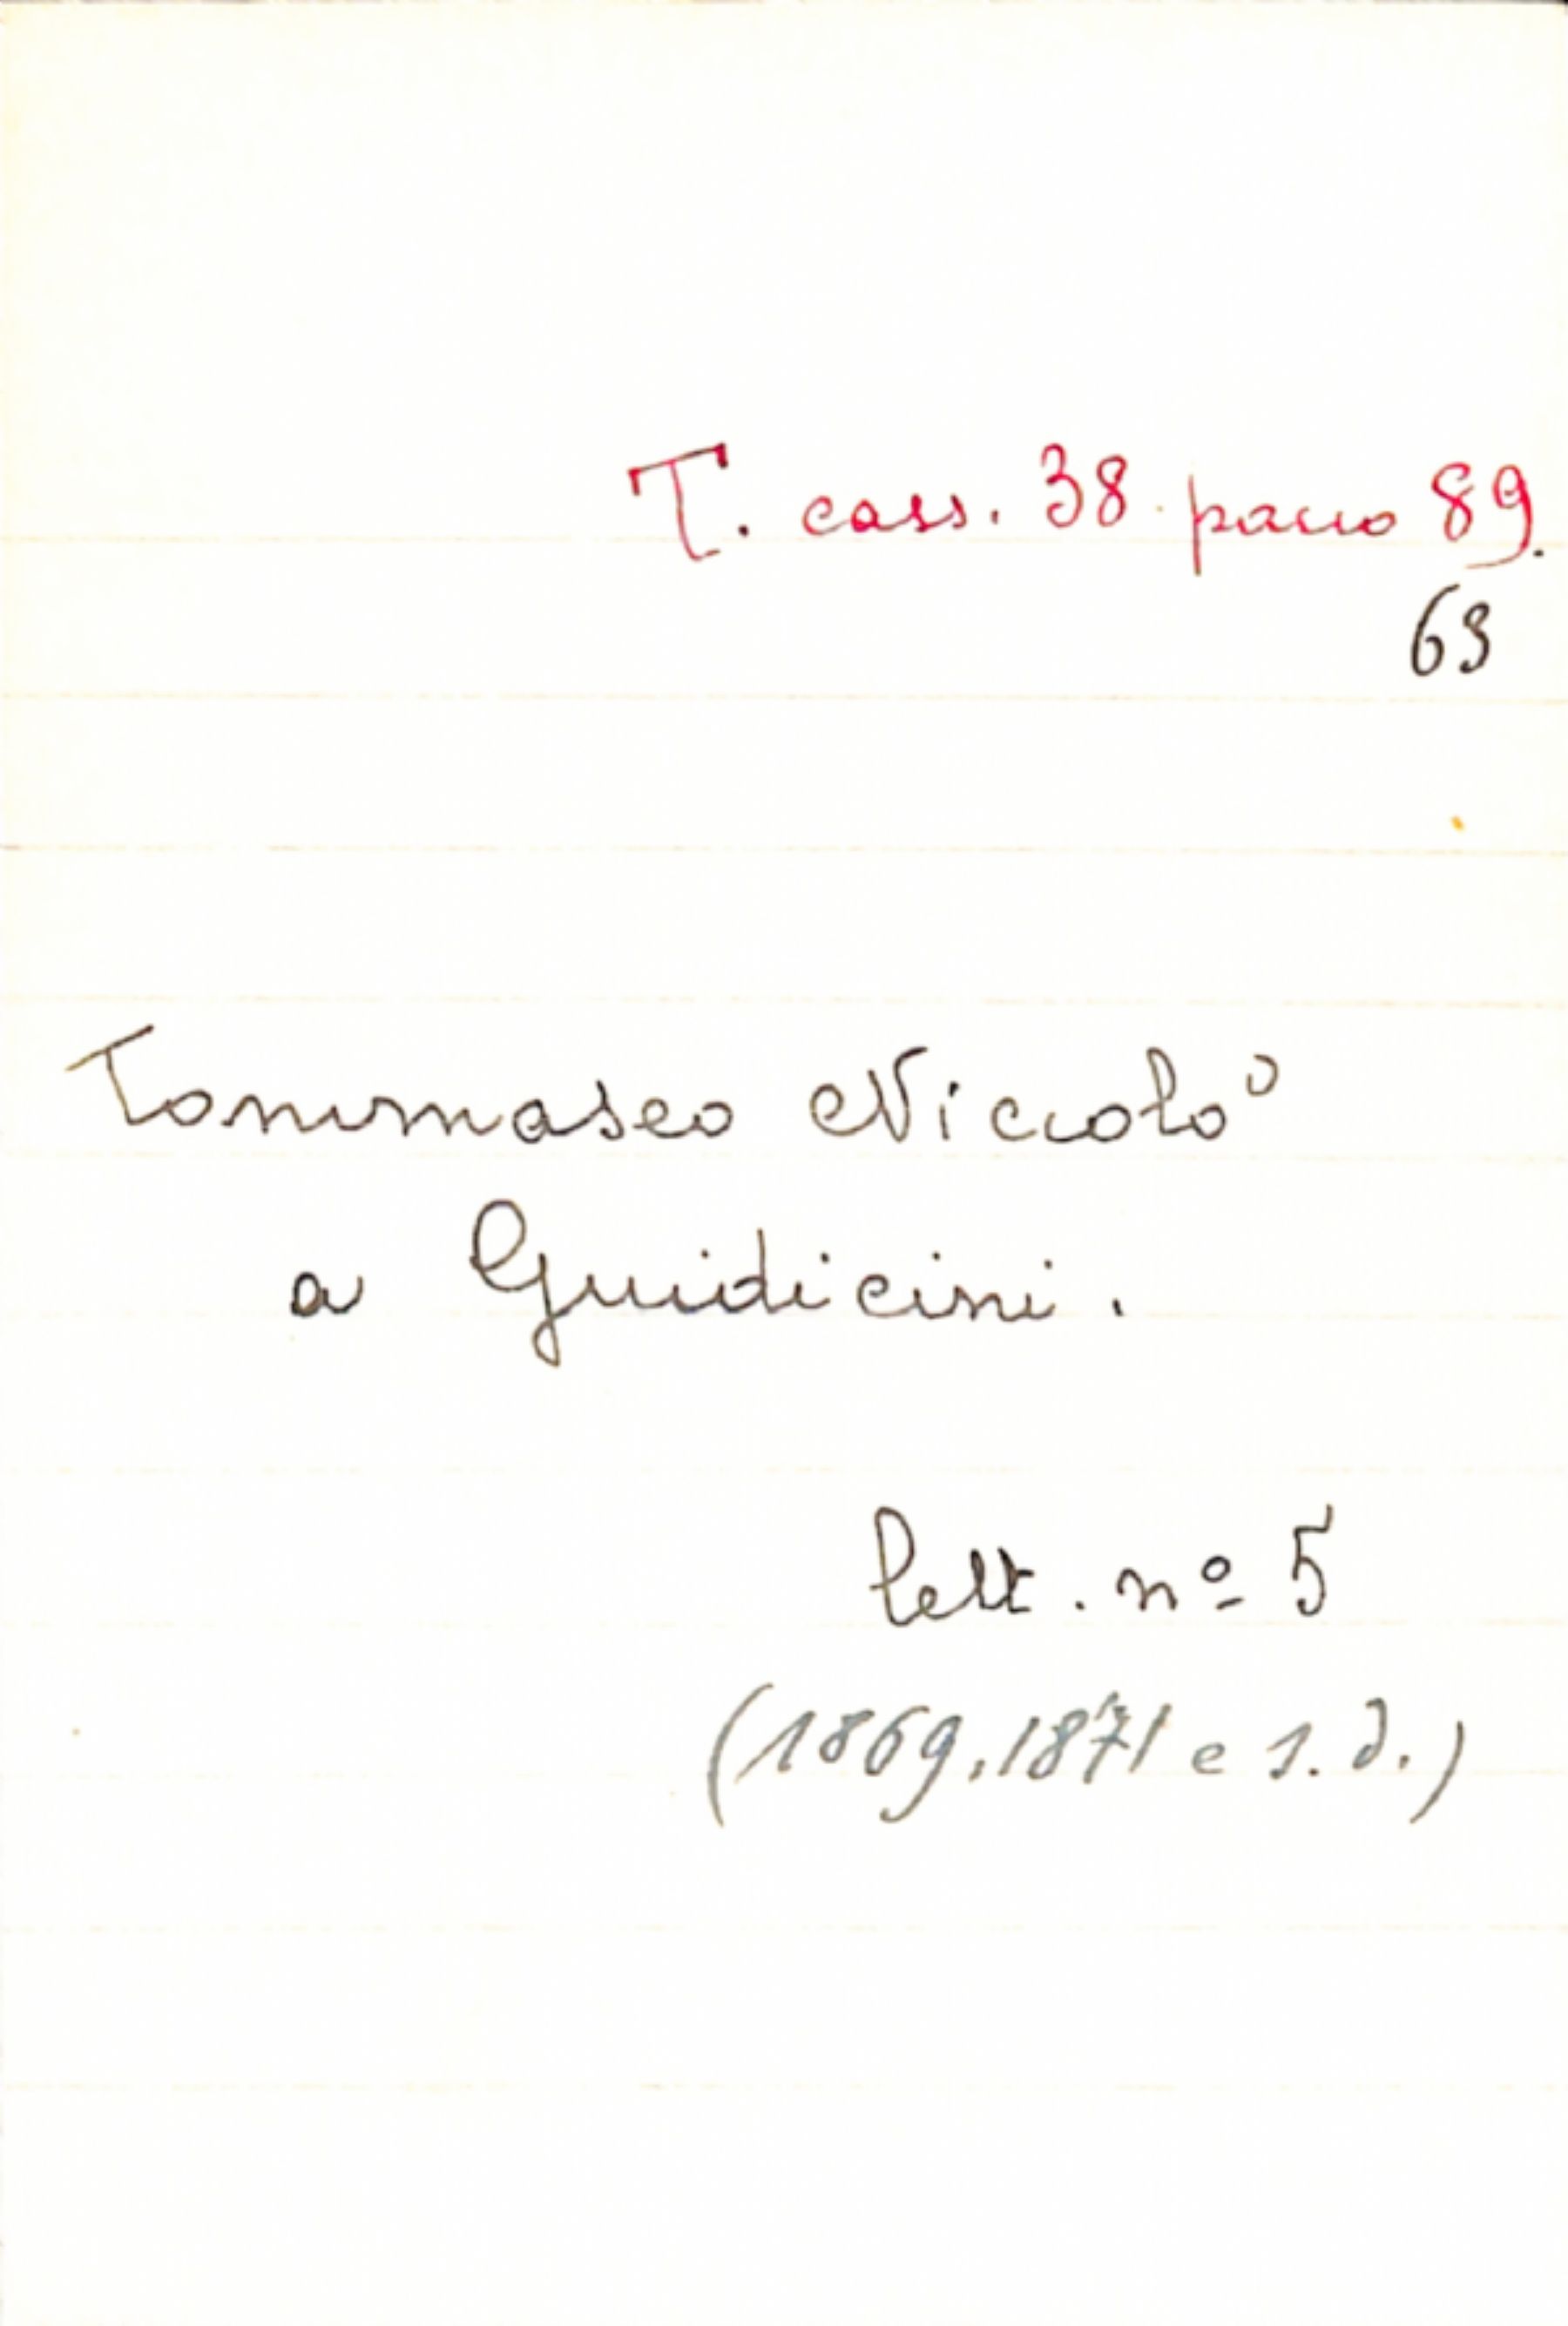 T. cass. 38. pacco 89.
63
Tommaseo Niccolò
a Guidicini.
lett. nº 5
(1869, 1871 e s. d.)